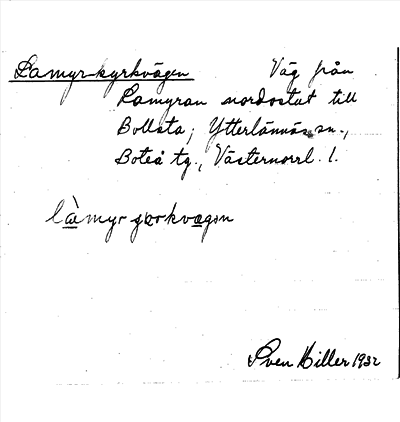 Lamyrkyrkvägen Väg från
Lamyran nordostut till
Bollsta; Ytterlännäs sn.,
Boteå tg., Västernorrl. l.
Sven Hiller 1932